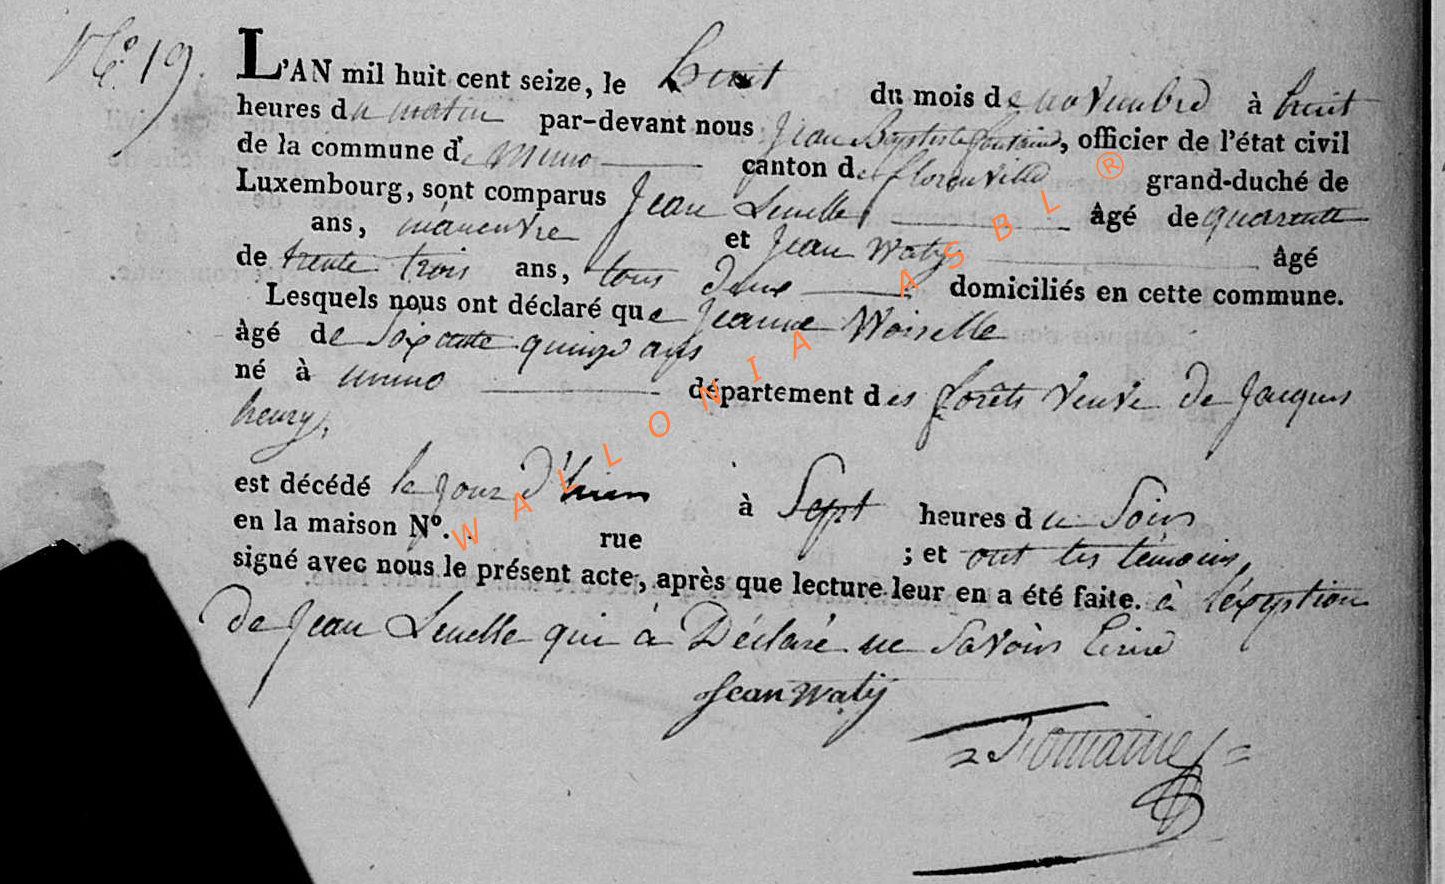 No. 19.
L'AN mil huit cent seize, le huit du mois de novembre à huit
heures du matin par-devant nous Jean Baptiste fontaine, officier de l'état civil
de la commune de muno canton de florenville grand-duché de
Luxembourg, sont comparus Jean Lenelle âgé de quarante
ans, manœuvre et Jean Waty âgé
de trente trois ans, tous deux domiciliés en cette commune.
Lesquels nous ont déclaré que Jeanne Woiselle
àgé de soixante quinze ans
né à muno département des forêts veuve de Jacques
henry,
est décédé le jour d'hier à Sept heures du Soir
en la maison No. rue ; et ont les témoins,
signé avec nous le présent acte, après que lecture leur en a été faite. à l'exeption
de Jean Lenelle qui à Déclaré ne savoir Ecrire
Jean Watÿ
fontaine
WALLONIA ASBL ®